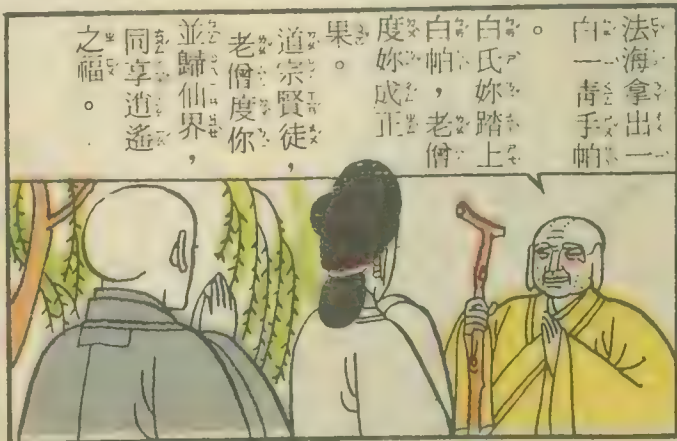 法海拿出一
白一青手帕
。
白氏妳踏上
白帕，老僧
度妳成正
果。
道宗賢徒，
老僧度你
並歸仙界，
同享逍遙
之福。